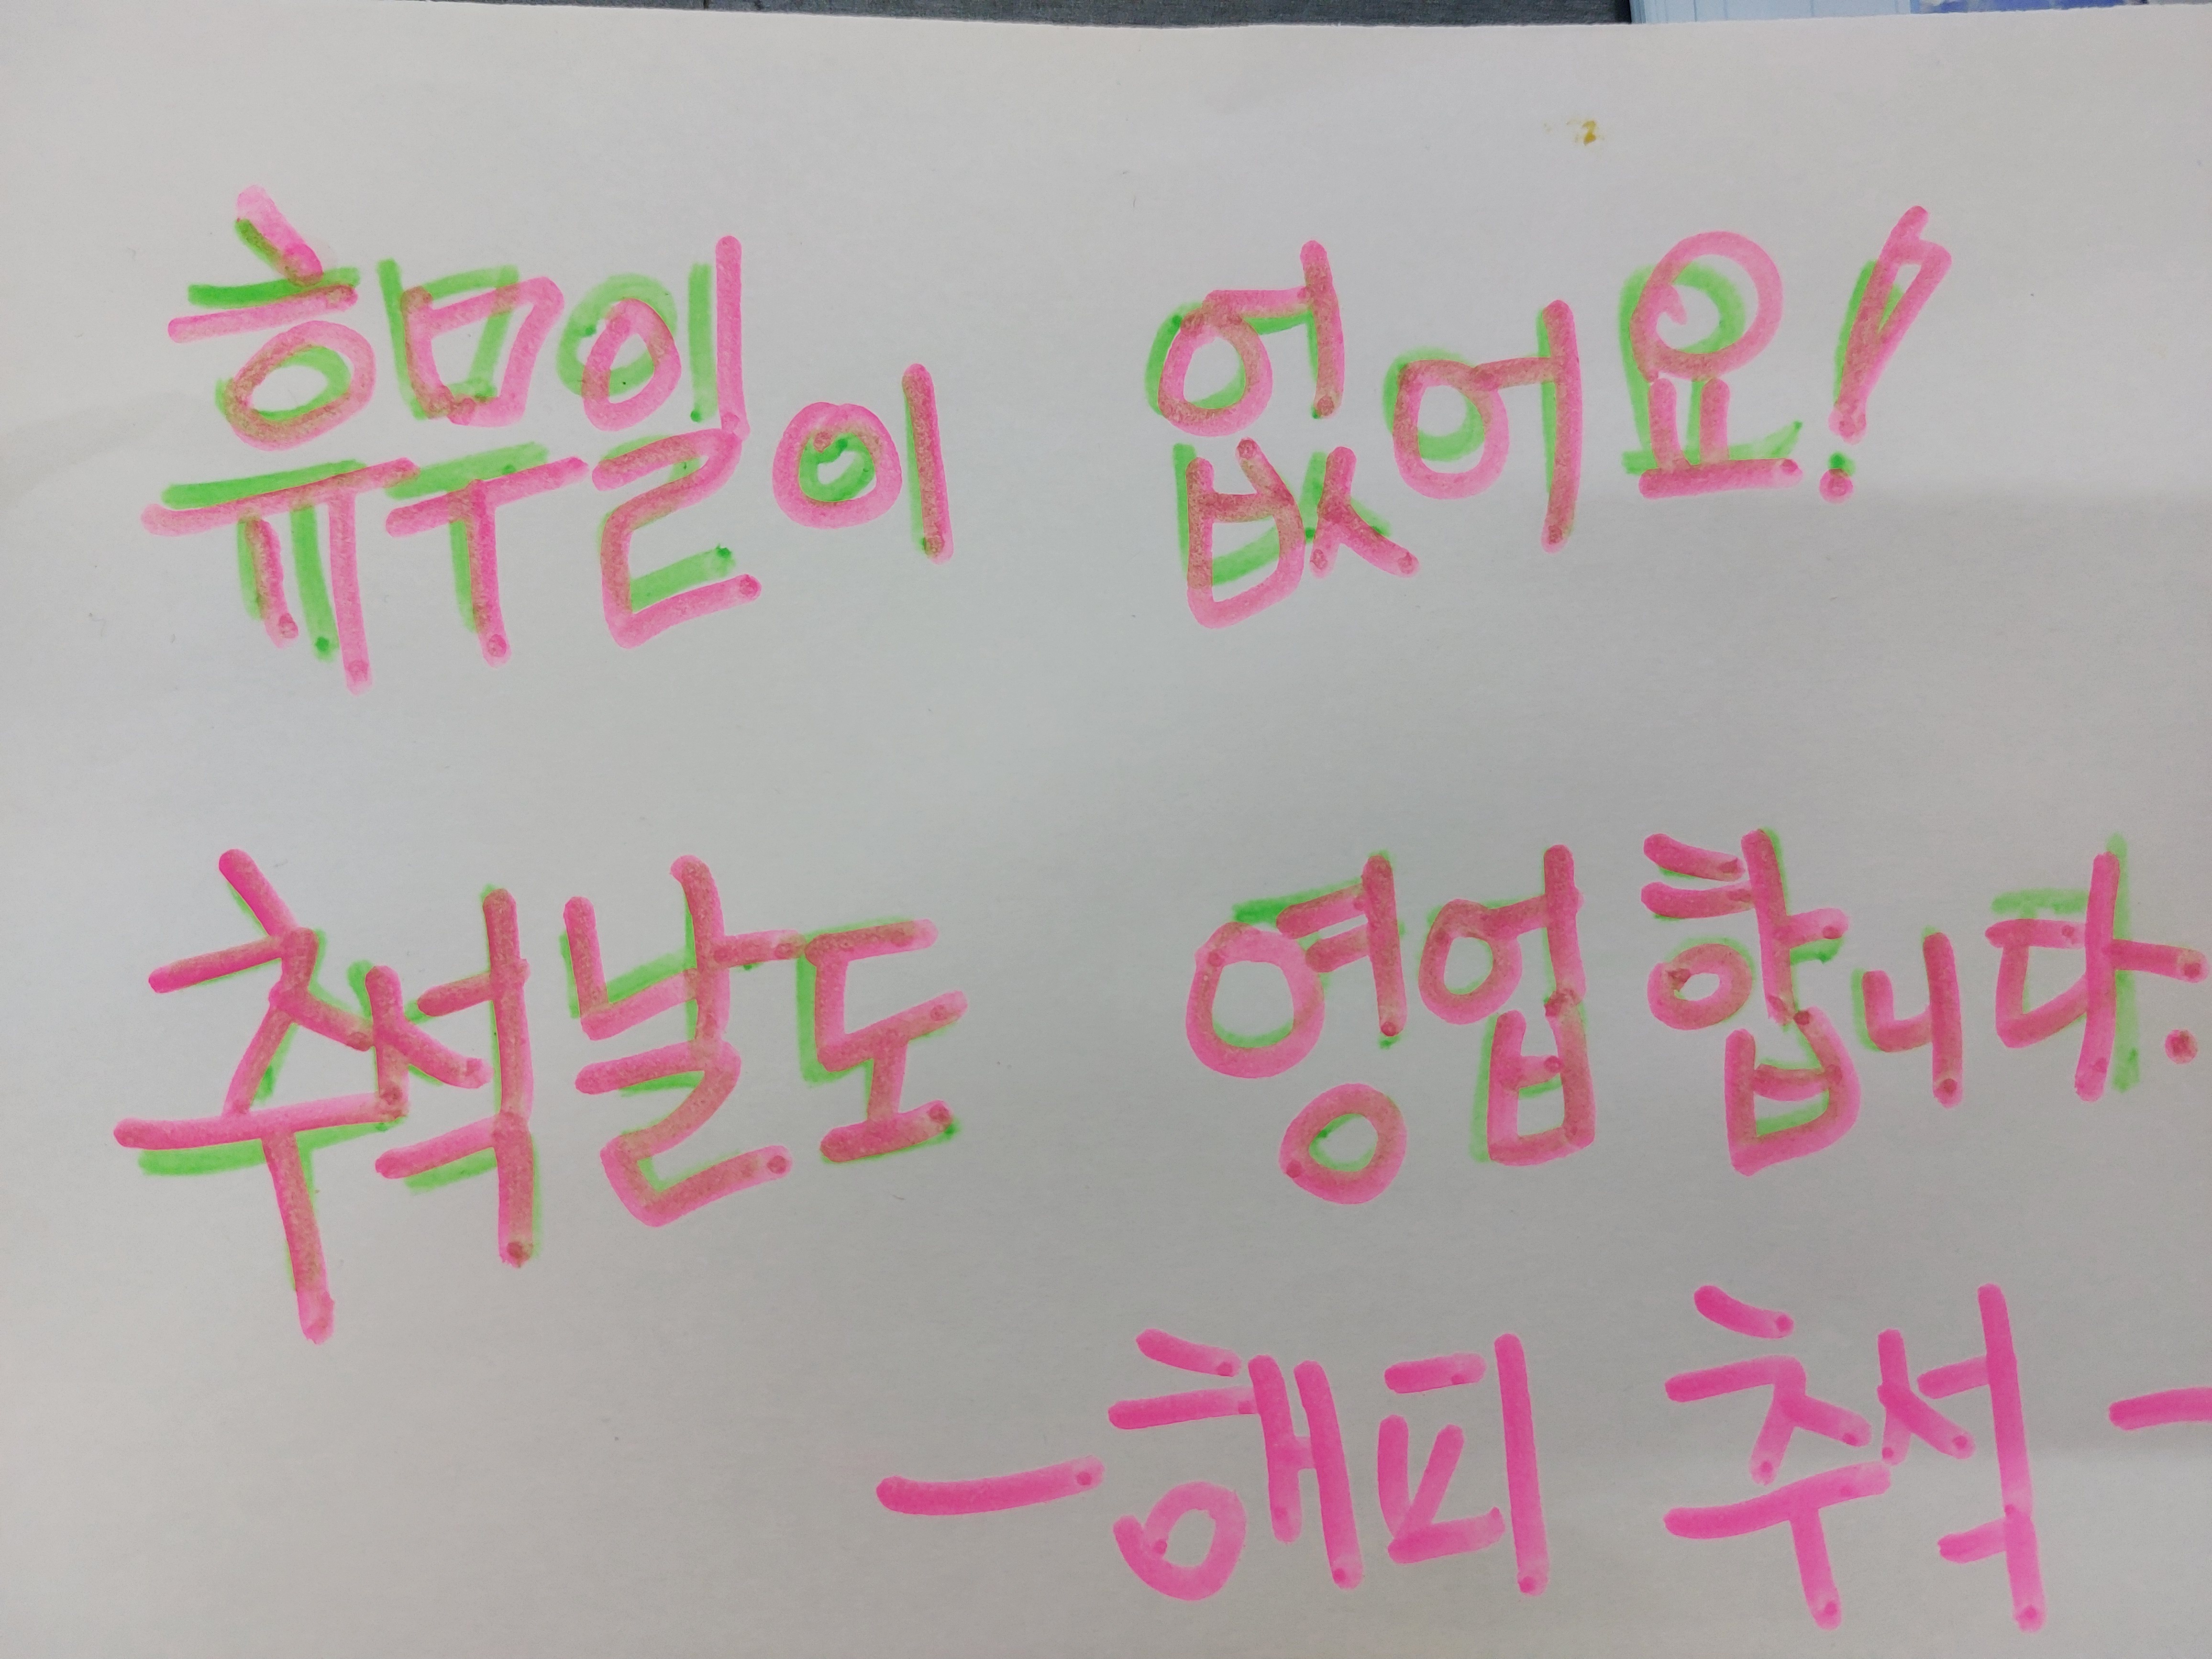 휴무일이 없어요!
추석날도 영업합니다.
- 해피 추석 -